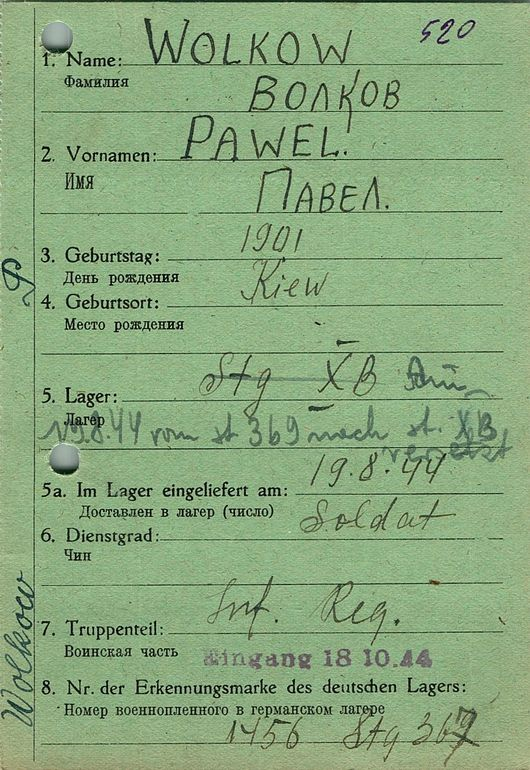 520
1. Name: WOLKOW
Фамилия
ВОЛКОВ
2. Vornamen: PAWEL.
Имя
ПАВЕЛ.
3. Geburtstag: 1901
День рождения
4. Geburtsort: Kiew
Место рождения
5. Lager: Stg XB
Лагер
19.8.44 vom st 369 nach st. XB
versetzt
5a. Im Lager eingeliefert am: 19.8.44
Доставлен в лагер (число)
6. Dienstgrad: Soldat
Чин
7. Truppenteil: Inf. Reg.
Воинская часть
Eingang 18 10.44
8. Nr. der Erkennungsmarke des deutschen Lagers:
Номер военнопленного в германском лагере
1456 Stg 367
Wolkow